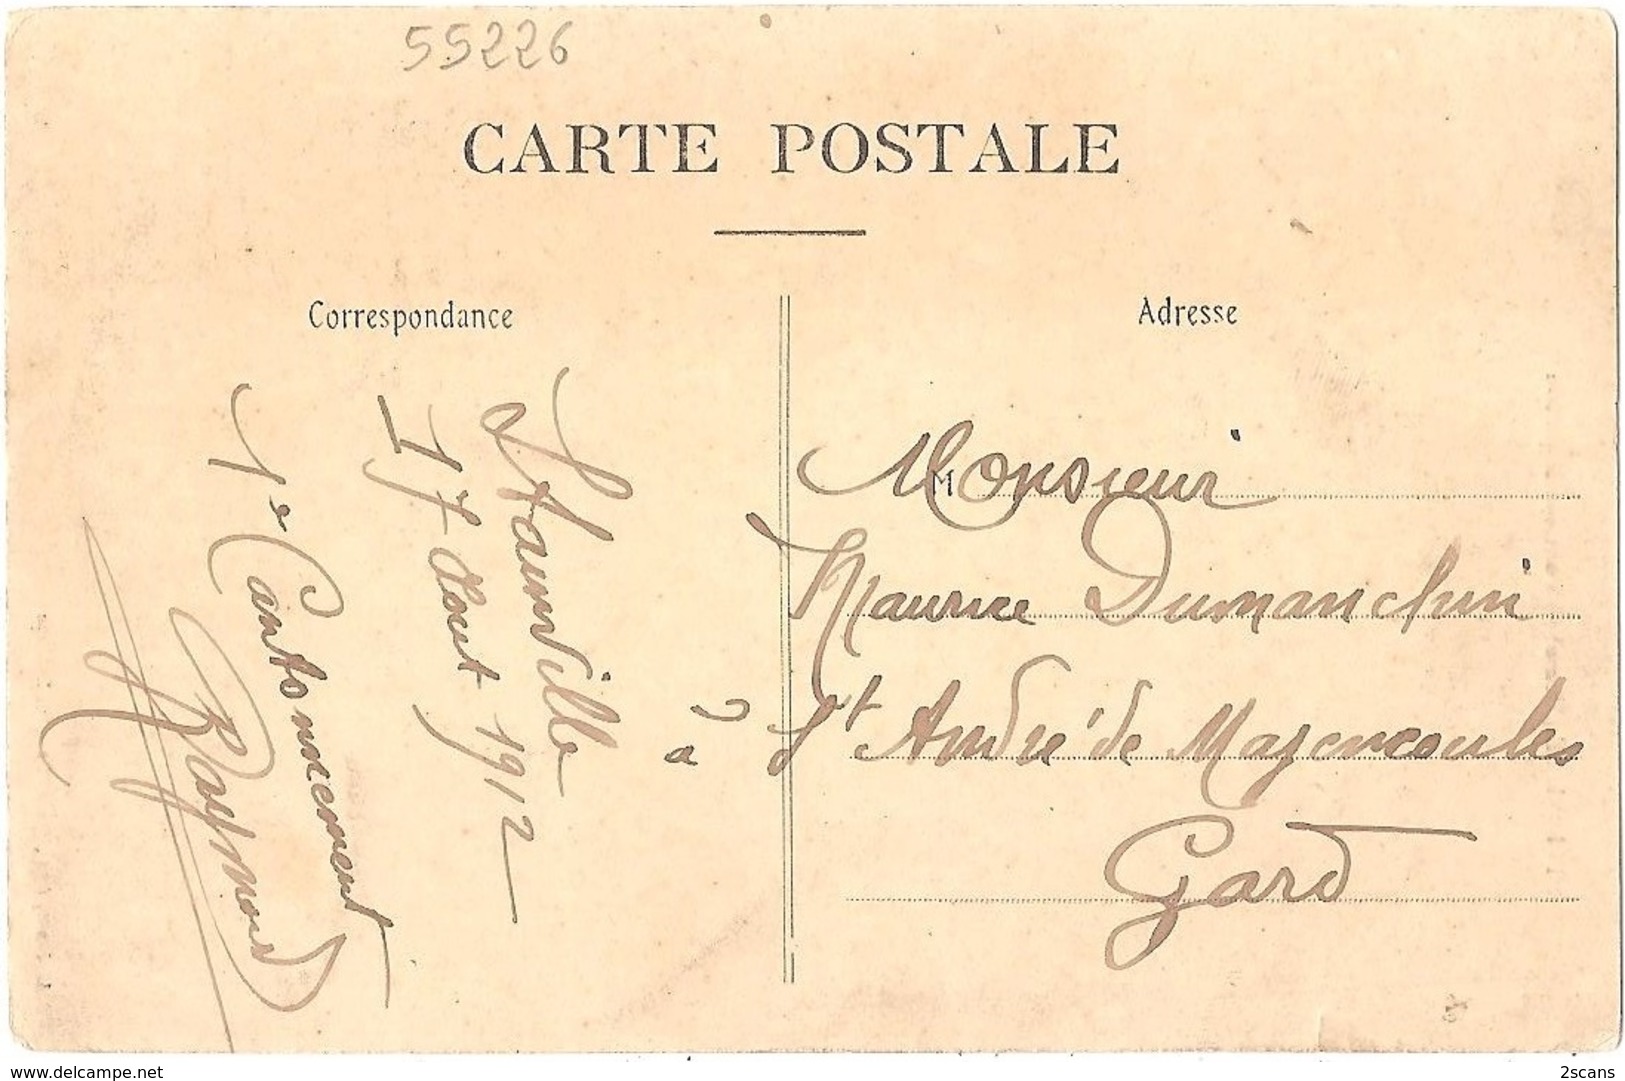 55226
CARTE POSTALE
Correspondance
Stainville
17 Aout 1912
1e Cantonnement
Raymond
Adresse
M
Monsieur
Maurice Dumanchin
à St André de Majencoules
Gard
delcampe.net
2scans